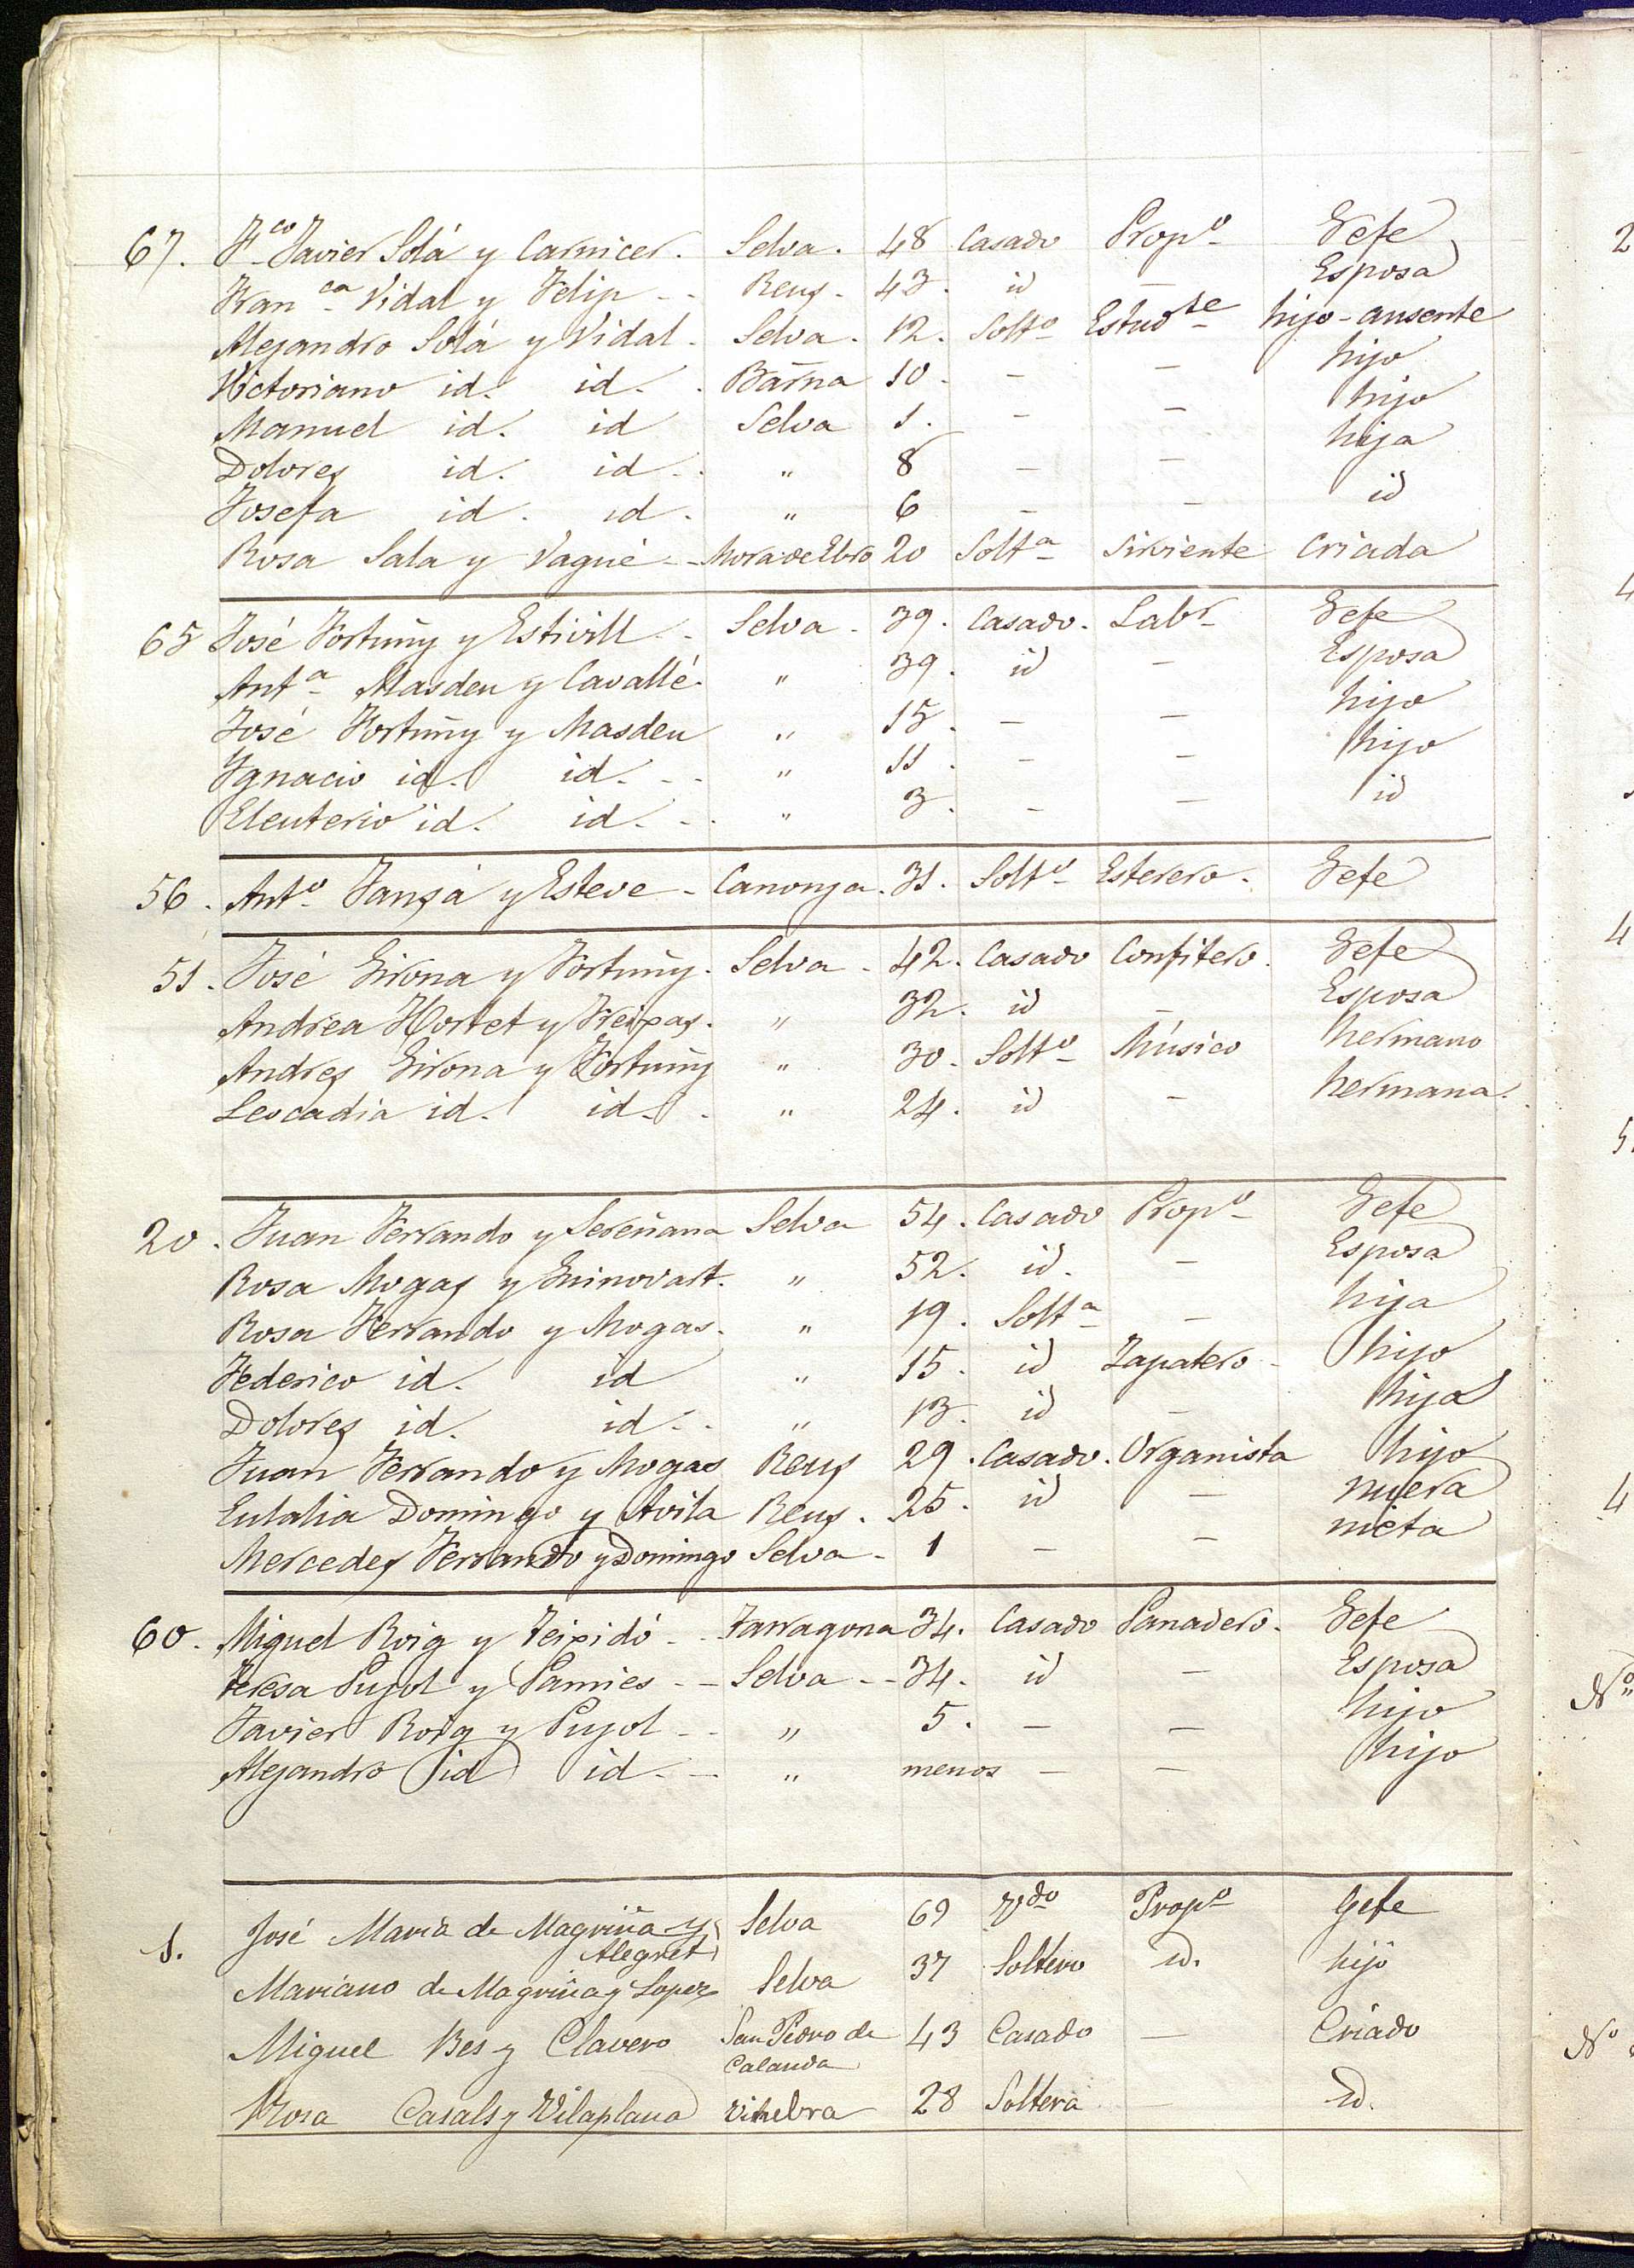 67. Fco Javier Solá y Carnicer. Selva. 48 Casado Propo Gefe
Franca Vidal y Felip - - Reus. 43. id — Esposa
Alejandro Solá y Vidal. Selva. 12. Solto Estudte hijo - ausente
Victoriano id. id. . Barna 10. — — hijo
Manuel id. id Selva 1. — — hijo
Dolores id. id - . " 8 — — hija
Josefa id. id. " 6 — — id
Rosa Sala y Vagué - - Mora de Ebro 20 Solta Sirviente Criada
65 José Fortuñy y Estivill - . Selva - 39. Casado. Labr Gefe
Anta Masdeu y Cavallé. " 39. id — Esposa
José Fortuñy y Masdeu " 15. — — hijo
Ignacio id. id. - . " 11. — — hijo
Eleuterio id. id. - . " 3. — — id
56. Anto Jansá y Esteve - Canonja. 31. Solto Esterero. Gefe
51. José Girona y Fortuñy. Selva - 42. Casado Confitero. Gefe
Andrea Hortet y Freixas. " 32. id — Esposa
Andres Girona y Fortuñy " 30. Solto Músico hermano
Leocadia id. id. . " 24. id — hermana.
20. Juan Ferrando y Sereñana Selva 54. Casado Propo Gefe
Rosa Mogas y Guinovart. " 52. id. — Esposa
Rosa Ferrando y Mogas. " 19. Solta — hija
Federico id. id " 15. id Zapatero - hijo
Dolores id. id. . " 13. id — hija
Juan Ferrando y Mogas Reus 29. Casado. Organista hijo
Eulalia Domingo y Avila Reus. 25. id — nuera
Mercedes Ferrando y Domingo Selva - 1 — — nieta
60. Miguel Roig y Teixidó - . Tarragona 34. Casado Panadero. Gefe
Teresa Pujol y Pamies - - Selva - - 34. id — Esposa
Javier Roig y Pujol - . " 5. — — hijo
Alejandro id id. - " menos — — hijo
1. José Maria de Magriñá y Selva 69 Vdo Propo Gefe
Alegret
Mariano de Magriñá y Lopez Selva 37 Soltero id. hijo
Miguel Bes y Clavero San Pedro de 43 Casado — Criado
Calanda
Rosa Casals y Vilaplana Vinebra 28 Soltera — id.